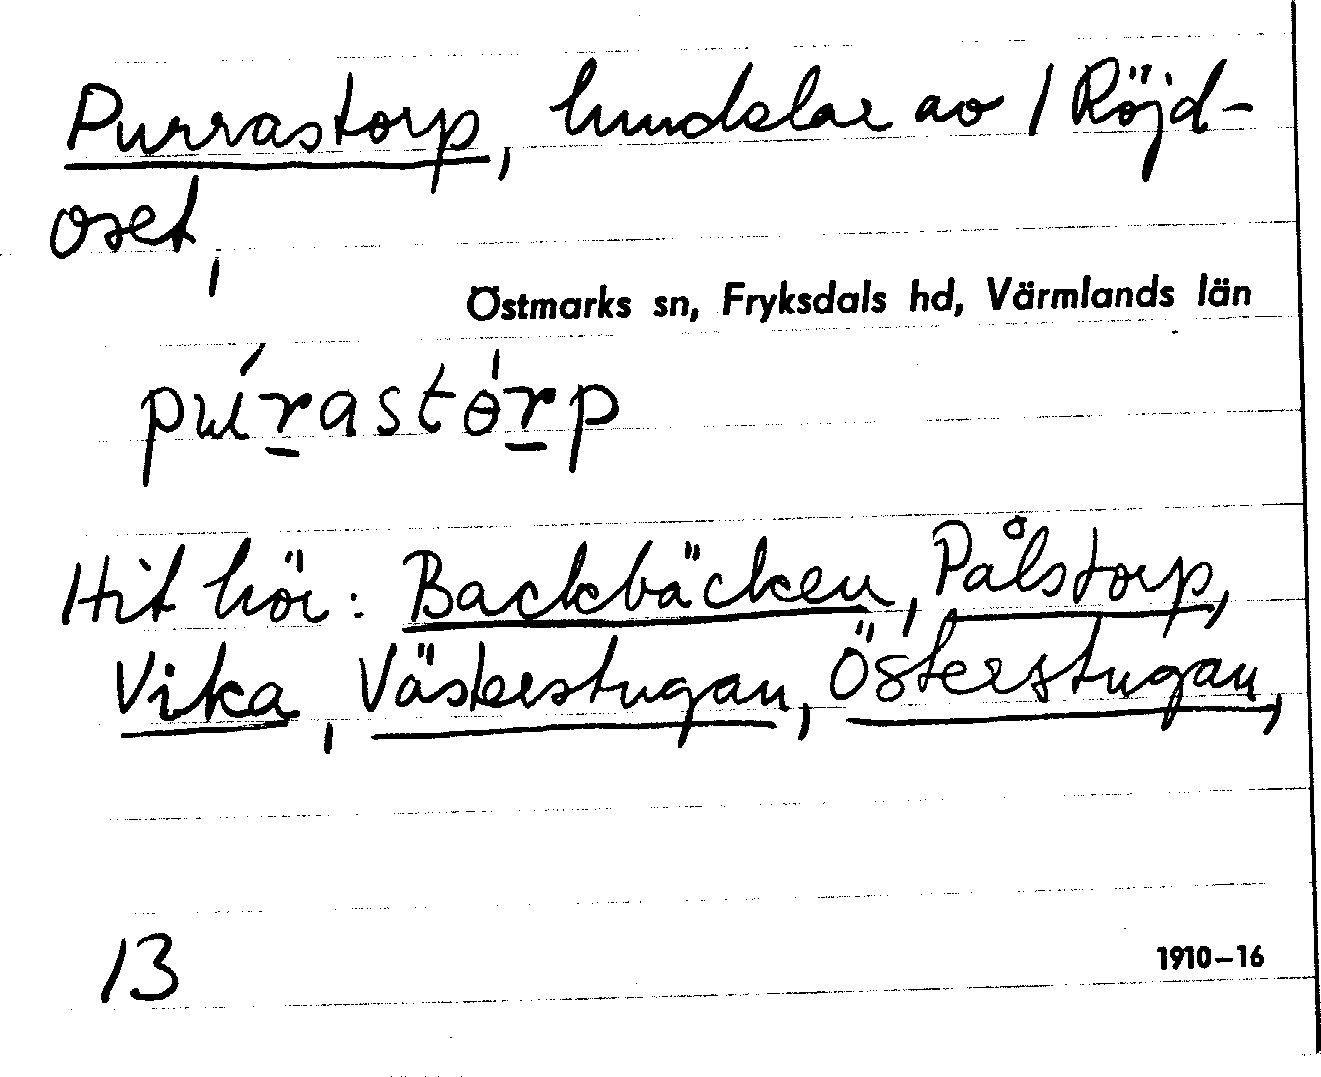 Purrastorp, hmdelar av 1 Röjd-
oset,
Östmarks sn, Fryksdals hd, Värmlands län
púrastòrp
Hit hör: Backbäcken, Pålstorp,
Vika, Västerstugan, Österstugan,
13
1910–16